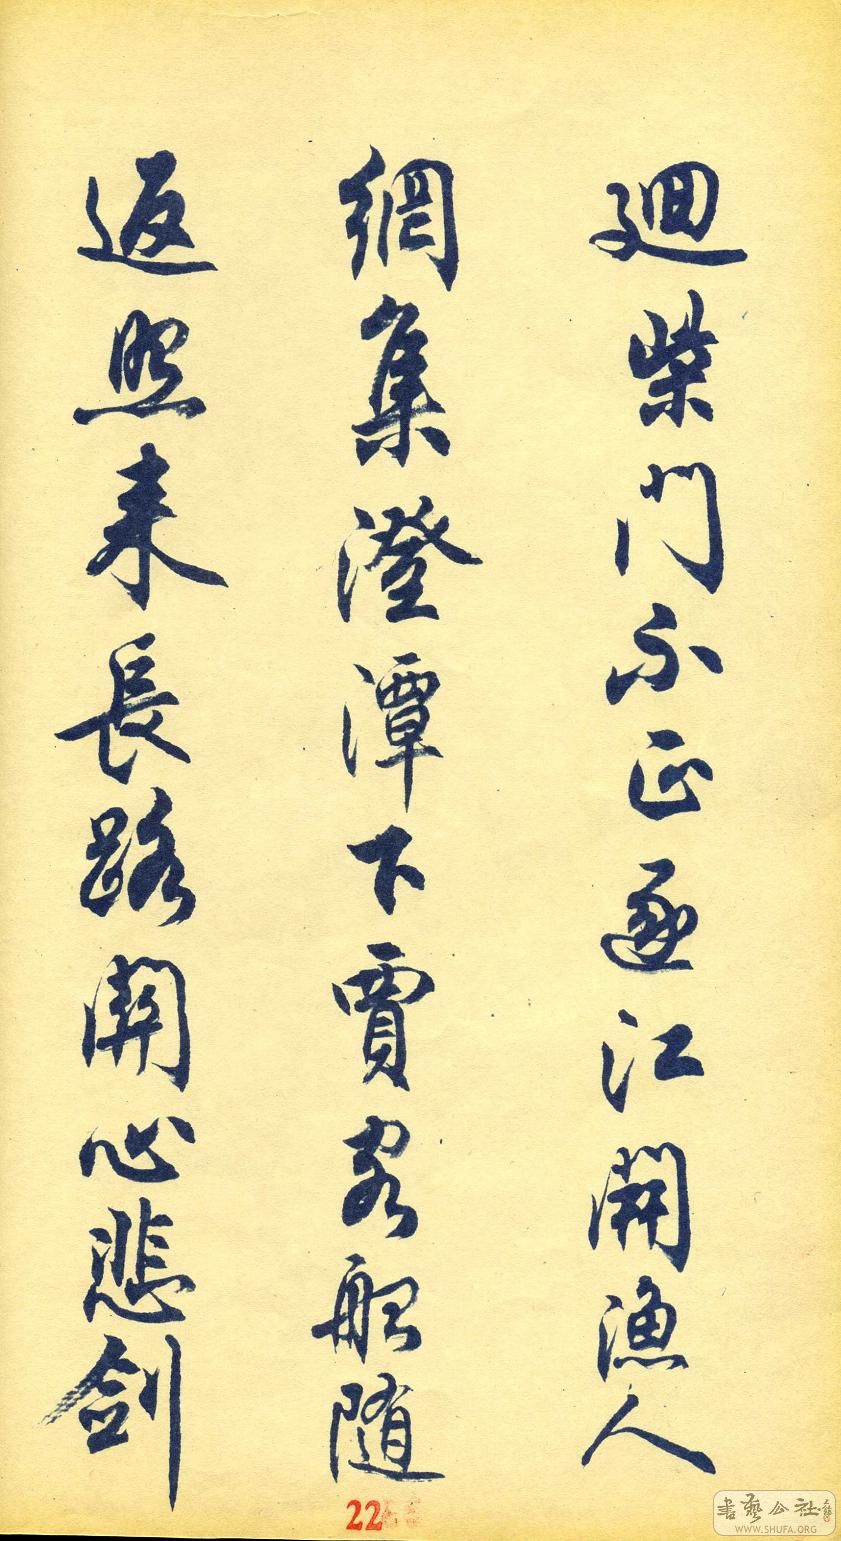 廻柴門不正逐江開漁人
網集澄潭下賈客船随
返照来長路関心悲劍
22
書藝公社
WWW.SHUFA.ORG